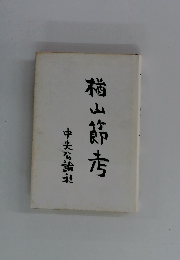 楢山節考
中央公論社